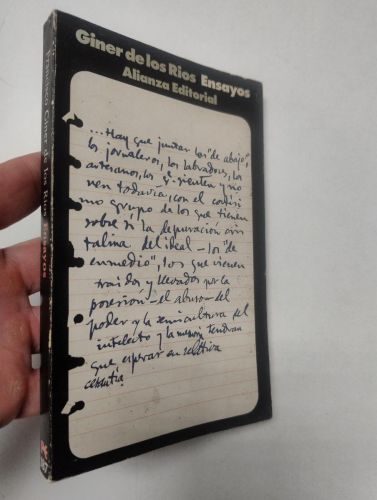 Giner de los Rios Ensayos
Alianza Editorial
...Hay que juntar los "de abajo",
los jornaleros, los labradores, los
artesanos, los q. sienten y no
ven todavía, con el cortísi
mo grupo de los que tienen
sobre sí la depuración cris
talina del ideal — los "de
enmedio", los que vienen
traidos y llevados por la
posesión — el abuso — del
poder y la semicultura del
intelecto y la tendrán
que esperar en relativa
Francisco Giner de los Rios Ensayos